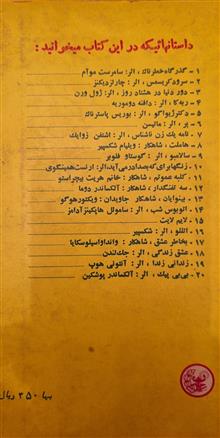 داستانهائیکه در این کتاب میخوانید :
۱ – گذرگاه خطرناك ، اثر : سامرست موآم
۲ – سرود کریسمس ، اثر : چارلزدیکنز
۳ – دور دنیا در هشتاد روز ، اثر : ژول ورن
۴ – ربه‌کا ، اثر : دافنه دوموریه
۵ – دکترژیواگو ، اثر : بوریس پاسترناك
۶ – پر ، اثر : ماتیسن
۷ – نامه یك زن ناشناس ، اثر : اشتفن زوایك
۸ – هاملت ، شاهکار ، ویلیام شکسپیر
۹ – سالامبو ، اثر : گوستاو فلوبر
۱۰ – زنگها برای که بصدا درمی‌آید ، اثر : ارنست همینگوی
۱۱ – کلبه عموتم ، شاهکار : خانم هریت بیچراستو
۱۲ – سه تفنگدار ، شاهکار : آلکساندر دوما
۱۳ – بینوایان ، شاهکار جاویدان : ویکتورهوگو
۱۴ – اتوبوس شب ، اثر : ساموئل هاپکینزآدامز
۱۵ – لایم لایت
۱۶ – اتللو ، اثر : شکسپیر
۱۷ – بخاطر عشق ، شاهکار : وانداواسیلوسکایا
۱۸ – عشق زندگی ، اثر : جك‌لندن
۱۹ – زندانی زندا ، اثر : آنتونی هوپ
۲۰ – بی‌بی پیك ، اثر : آلکساندر پوشکین
بها ۳۵۰ ریال